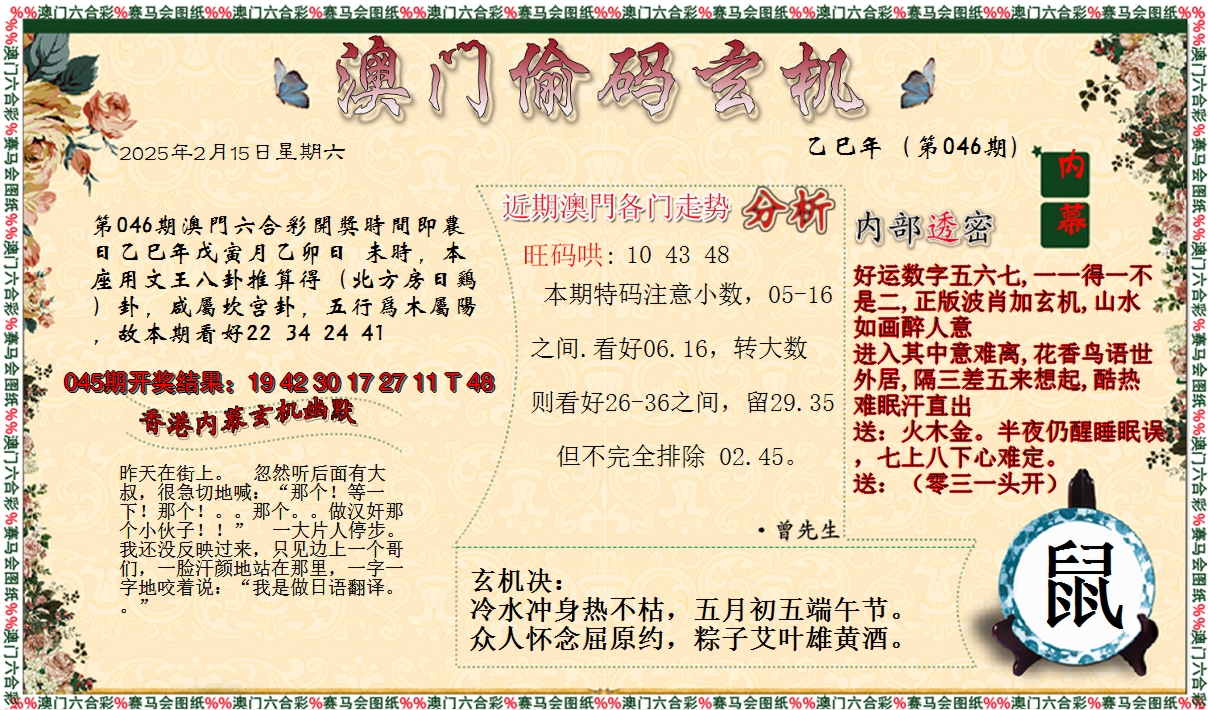 %%澳门六合彩%赛马会图纸%%澳门六合彩%赛马会图纸%%澳门六合彩%赛马会图纸%%澳门六合彩%赛马会图纸%%澳门六合彩%赛马会图纸%%澳门六合彩%赛马会图纸%%
澳门偷码玄机
2025年2月15日星期六
乙巳年（第046期）
内幕
第046期澳門六合彩開獎時間即農
日乙巳年戊寅月乙卯日 未時，本
座用文王八卦推算得（北方房日鷄
）卦，咸屬坎宫卦，五行爲木屬陽
，故本期看好22 34 24 41
045期开奖结果：19 42 30 17 27 11 T 48
香港内幕玄机幽默
昨天在街上。 忽然听后面有大
叔，很急切地喊：“那个！等一
下！那个！。。那个。。做汉奸那
个小伙子！！” 一大片人停步。
我还没反映过来，只见边上一个哥
们，一脸汗颜地站在那里，一字一
字地咬着说：“我是做日语翻译。
。”
近期澳門各门走势 分析
旺码哄: 10 43 48
本期特码注意小数，05-16
之间.看好06.16，转大数
则看好26-36之间，留29.35
但不完全排除 02.45。
·曾先生
内部透密
好运数字五六七,一一得一不
是二,正版波肖加玄机,山水
如画醉人意
进入其中意难离,花香鸟语世
外居,隔三差五来想起,酷热
难眠汗直出
送：火木金。半夜仍醒睡眠误
，七上八下心难定。
送：（零三一头开）
玄机决：
冷水冲身热不枯，五月初五端午节。
众人怀念屈原约，粽子艾叶雄黄酒。
鼠
%%澳门六合彩%赛马会图纸%%澳门六合彩%赛马会图纸%%澳门六合彩%赛马会图纸%%澳门六合彩%赛马会图纸%%澳门六合彩%赛马会图纸%%澳门六合彩%赛马会图纸%%